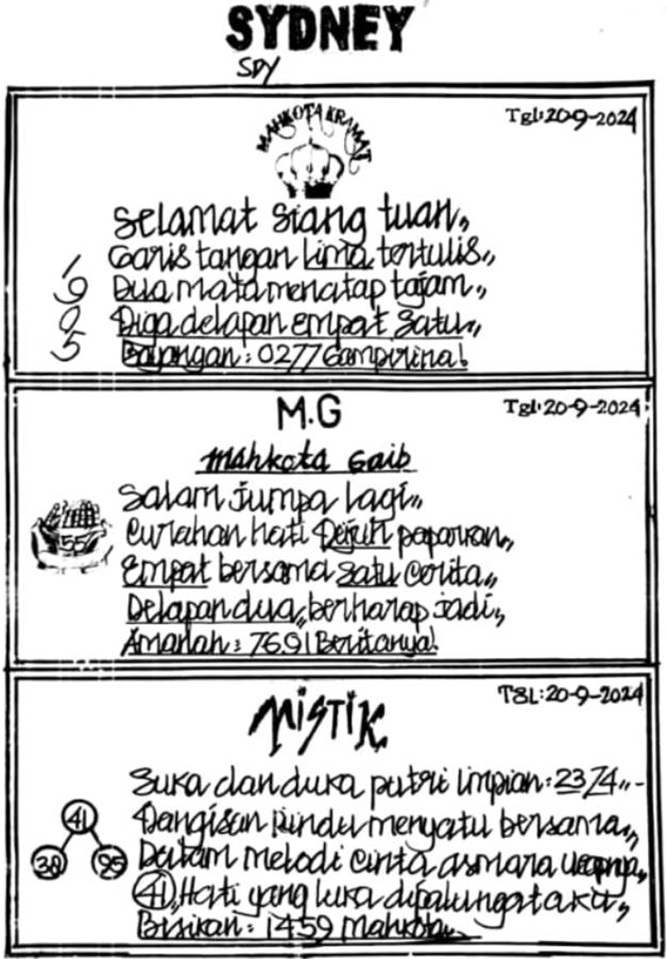 SYDNEY
SDY
Tgl:20-9-2024
MAHKOTA KRAMAT
Selamat Siang tuan,,
Garis tangan lima tertulis,,
1
9
0
5
Dua mata menatap tajam,,
Diga delapan empat Satu,,
Bayangan: 0277 Gampirina!
M.G
Tgl:20-9-2024
Mahkota Gaib
55
Salam jumpa lagi,,
Curahan hati Dejuh paparkan,,
Empat bersama Satu Cerita,,
Delapan dua,, berharap jadi,,
Amanah: 7691 Beritanya!
MISTIK
TGL:20-9-2024
Suka dan duka putri impian: 2374,,-
41
38 95
Dangisan Rindu menyatu bersama,,
Dalam melodi Cinta asmara
41, Hati yang luka dipalungataku,,
Bisikan: 1459 Mahkota,,